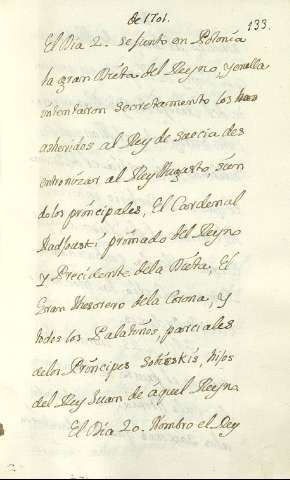 de 1701.
133.
El Dia 2. se junto en Polonia
la gran Dieta del Reyno, y en ella
intentaron secretamente los
adheridos al Rey de Suecia des
entronizar al Rey Augusto, sien
do los principales, El Cardenal
primado del Reyno
y Precidente de la Dieta, El
Gran thesorero de la Corona, y
todos los Palatinos, parciales
de los Principes Sobieskis, hijos
del Rey Juan de aquel Reyno
El Dia 20. Nombro el Rey